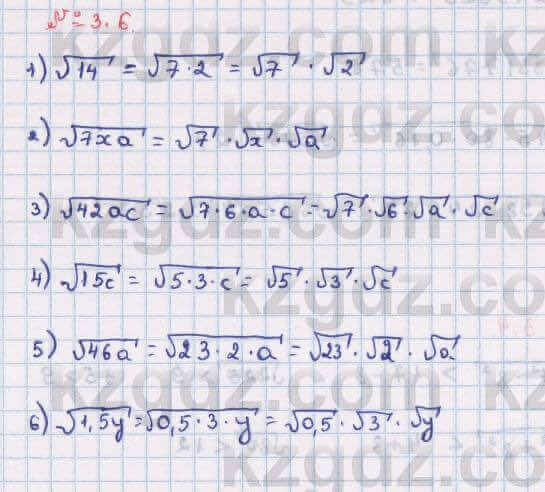 № 3.6
1) √14 = √7·2 = √7 · √2
2) √7xa = √7 · √x · √a
3) √42ac = √7·6·a·c = √7 · √6 · √a · √c
4) √15c = √5·3·c = √5 · √3 · √c
5) √46a = √23·2·a = √23 · √2 · √a
6) √1,5y = √0,5·3·y = √0,5 · √3 · √y
kzgdz.com